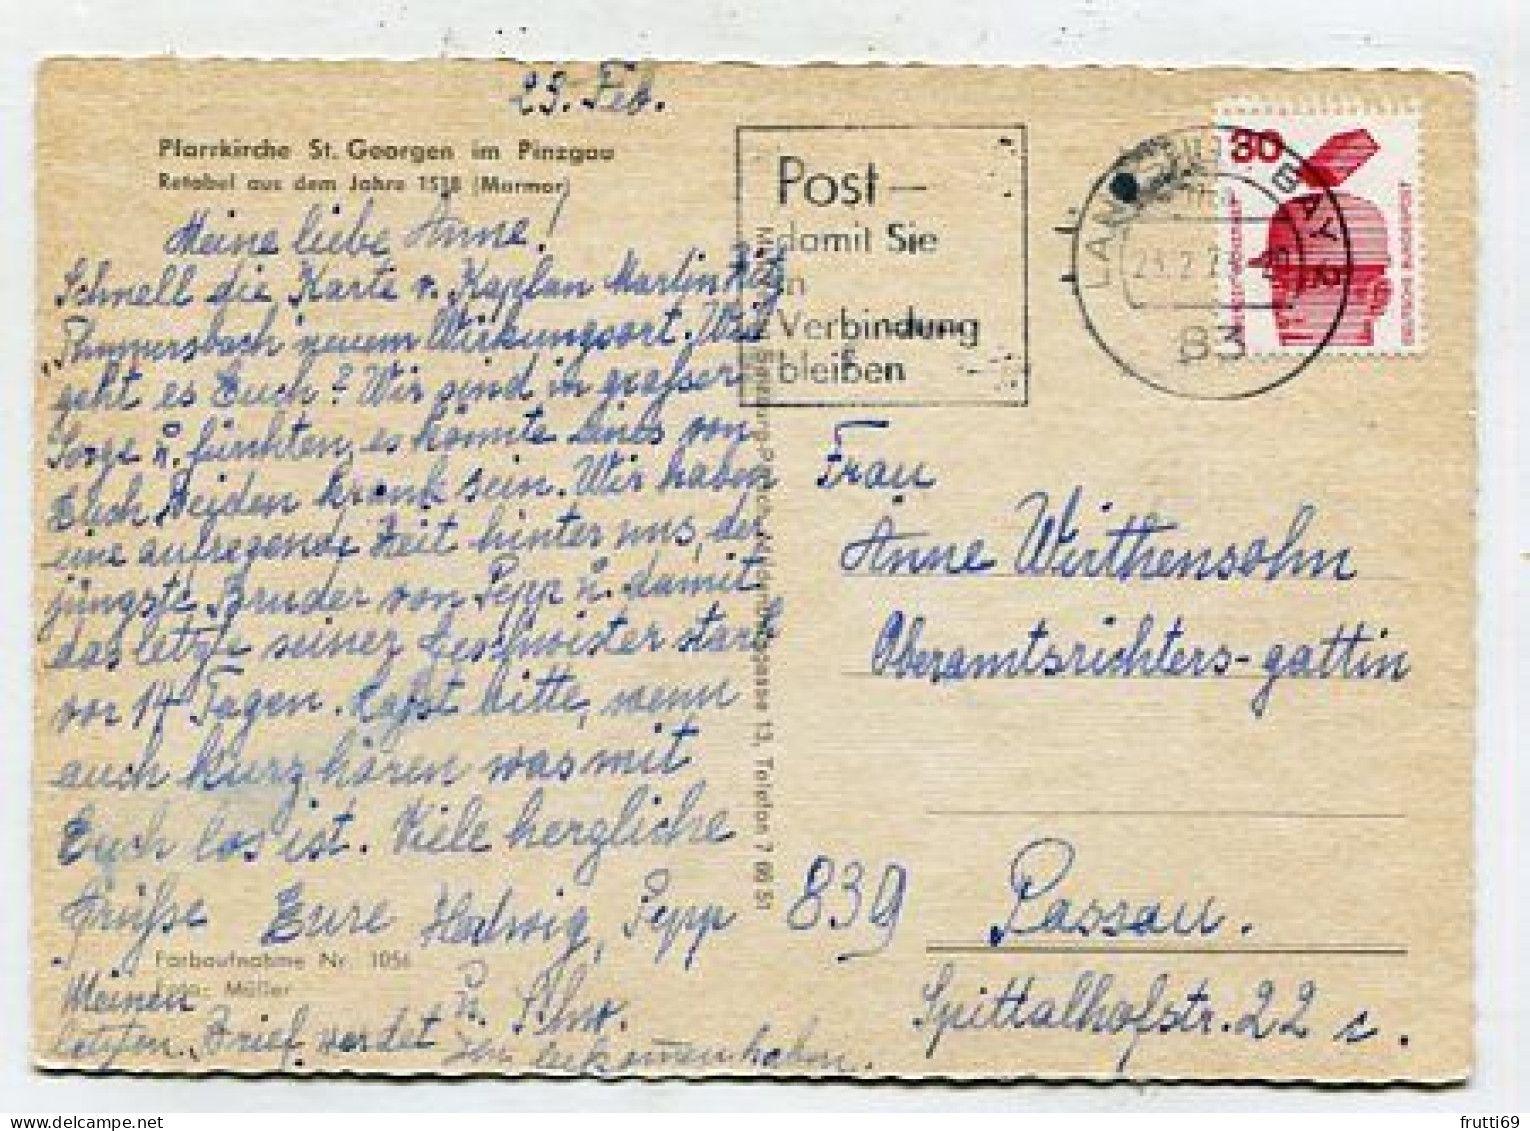 23. Feb.
Pfarrkirche St. Georgen im Pinzgau
Retabel aus dem Jahre 1518 (Marmor)
Meine liebe Anne!
Schnell die Karte v. Kaplan Martin
neuem Wirkungsort. Wie
geht es Euch? Wir sind in grosser
Sorge u. fürchten, es könnte eines von
Euch beiden krank sein. Wir haben
eine aufregende Zeit hinter uns, der
jüngste Bruder von Pepp u. damit
das letzte seiner Geschwister starb
vor 14 Tagen. Laßt bitte, wenn
auch kurz hören was mit
Euch los ist. Viele herzliche
Grüße Eure Hedwig, Pepp
u. Schw.
Meinen
letzten Brief werdet Ihr bekommen haben.
Farbaufnahme Nr. 1056
Foto: Müller
Salzburg-Parsch, 13, Telefon 7 66 51
Post–
damit Sie
in
Verbindung
bleiben
LAN BAY
83
30
DEUTSCHE BUNDESPOST
Frau
Anne Wirthensohn
Oberamtsrichters-gattin
839 Passau.
Spittalhofstr. 22 c.
frutti69